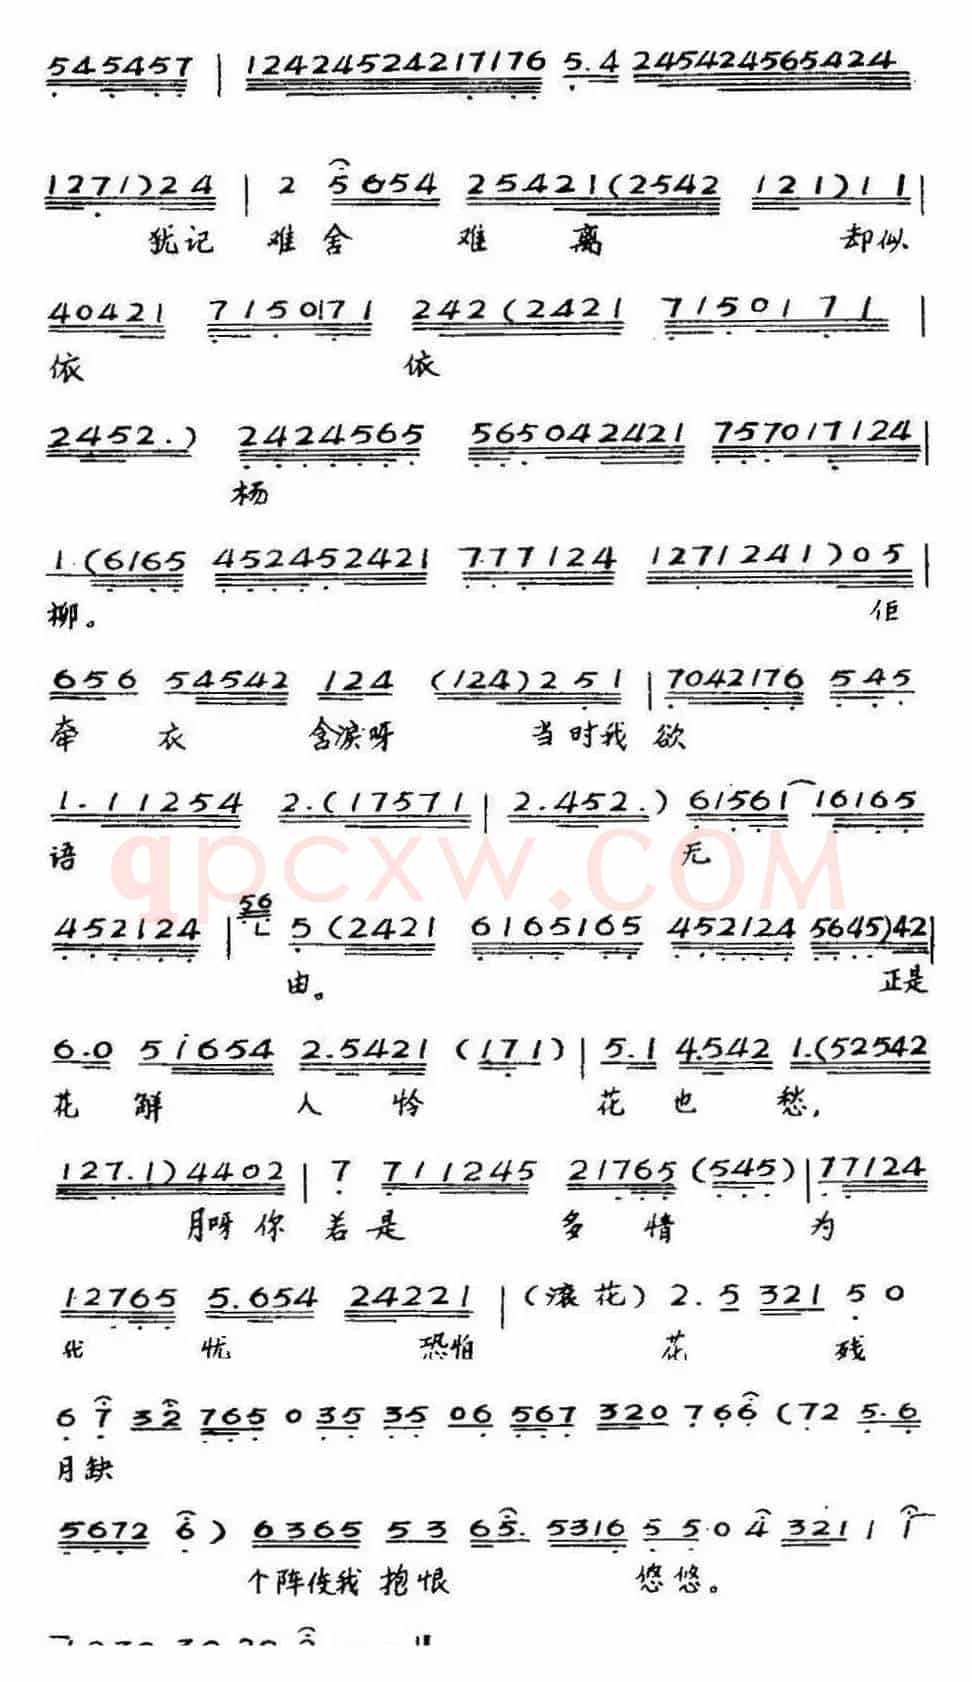 545457 | 124242452421 7176 5.4 245424565424
1271)24 | 2 5654 25421(2542 121)11 |
犹记 难舍 难 离 却似
40421 7150171 242(2421 7150171 |
依 依
2452.) 2424565 565042421 757017124 |
杨
1.(6165 452452421 777124 1271241)05 |
柳。 佢
656 54542 124 (124)251 | 7042176 545
牵 衣 含泪呀 当时我 欲
1.11254 2.(17571 | 2.452.) 61561 16165
语 无
qpcxw.COM
452124 | 56 5(2421 6165165 452124 5645)42 |
由。 正是
6.0 51654 2.5421 (171) | 5.1 4.542 1.(52542
花 解 人 怜 花 也 愁,
127.1)4402 | 7 711245 21765 (545) | 77124
月呀你 若 是 多 情 为
12765 5.654 24221 | (滚花) 2.5 321 5 0
我 忧 恐怕 花 残
6 7 32 765 0 35 35 06 567 320 766 (72 5.6
月缺
5672 6) 6365 53 65. 5316 5 5.04 321 1 1
个阵使我 抱恨 悠悠。